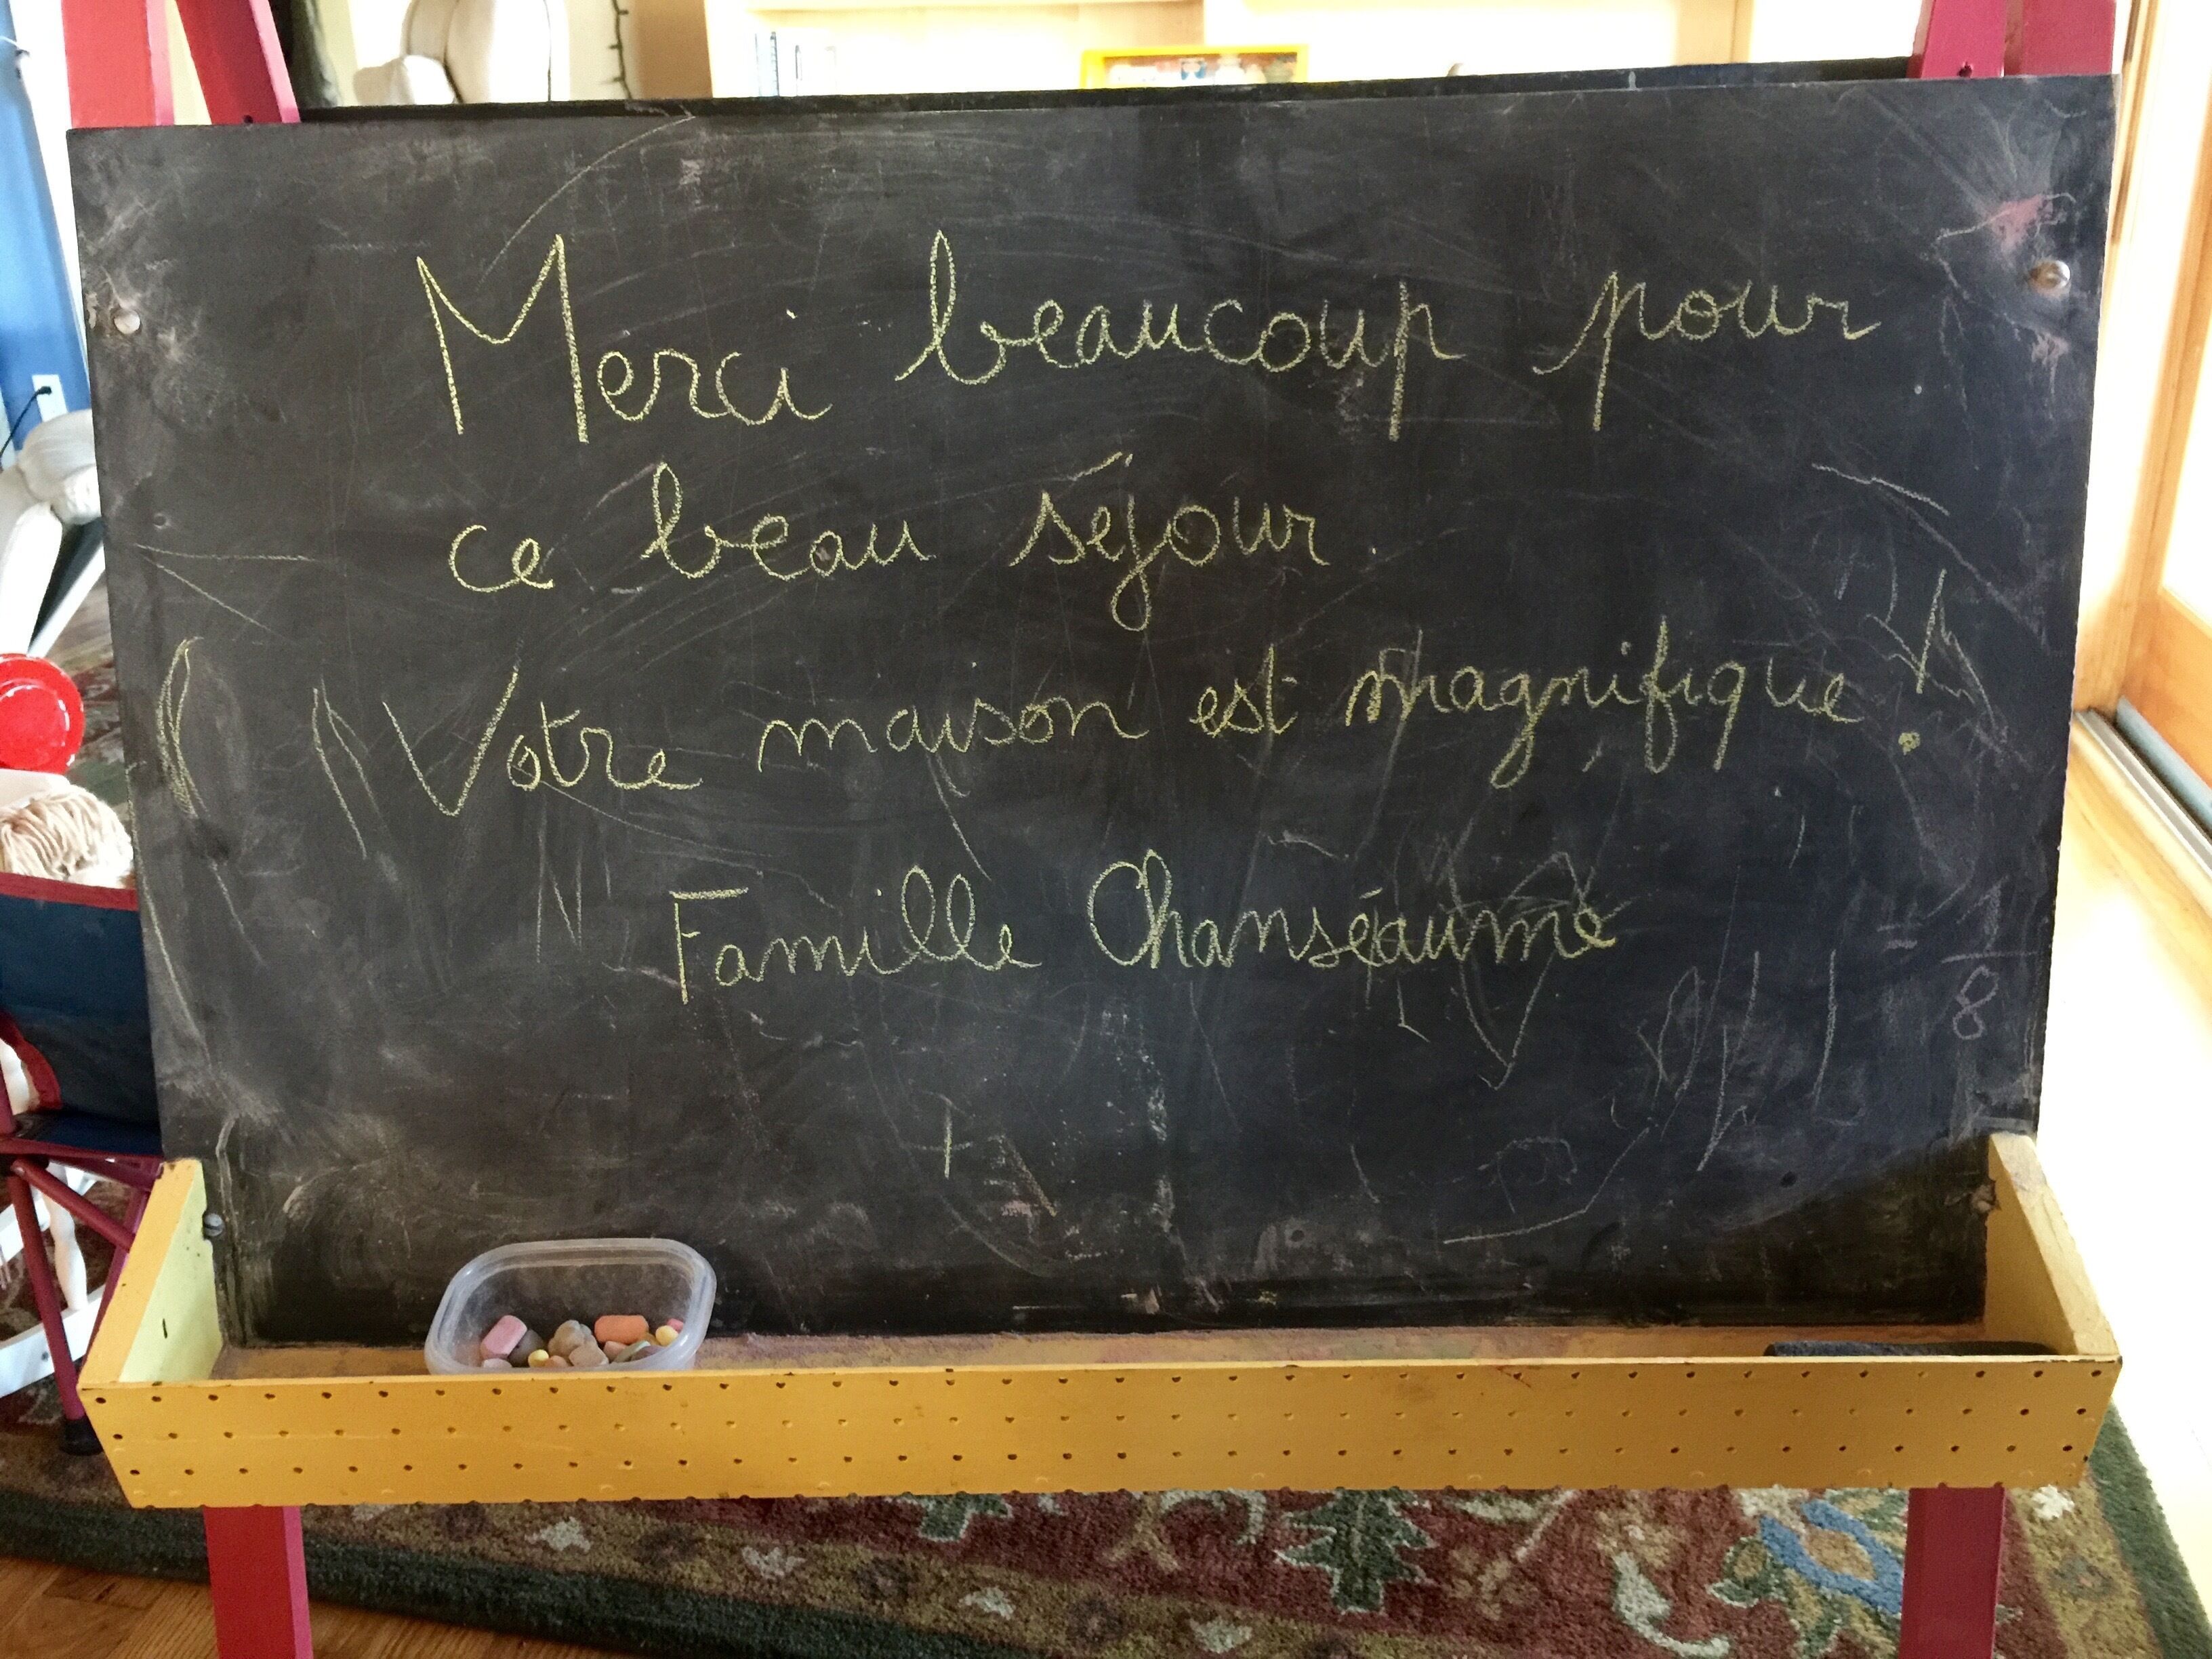 Merci beaucoup pour
ce beau séjour
Votre maison est magnifique !
Famille Chanséaume
8